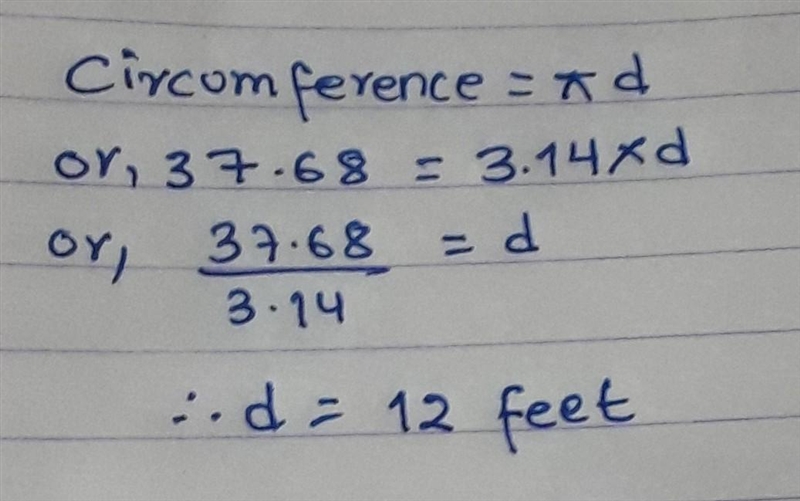 Circomference = π d
or, 37.68 = 3.14 × d
or, 37.68 / 3.14 = d
∴ d = 12 feet